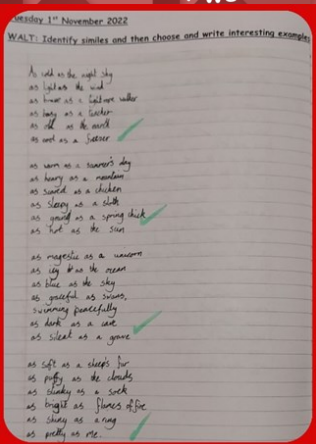 Tuesday 1st November 2022
WALT: Identify similes and then choose and write interesting examples
As cold as the night sky
as light as the wind
as brave as a tightrope walker
as busy as a teacher
as old as the earth
as cool as a freezer
as warm as a summer's day
as heavy as a mountain
as scared as a chicken
as sleepy as a sloth
as young as a spring chick
as hot as the sun
as magestic as a unicorn
as icy as the ocean
as blue as the sky
as graceful as swans,
swimming peacefully
as dark as a cave
as silent as a grave
as soft as a sheep's fur
as puffy as the clouds
as stinky as a sock
as bright as flames of fire
as shiny as a
as pretty as me.